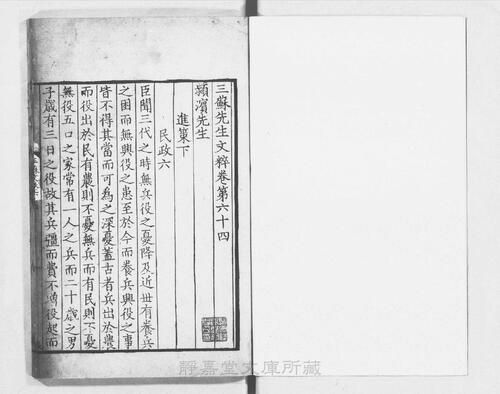 三蘇先生文粹卷第六十四
潁濱先生
進策下
民政六
臣聞三代之時無兵役之憂降及近世有養兵
之困而無興役之患至於今而養兵興役之事
皆不得其當而可為之深憂蓋古者兵出於農
而役出於民有農則不憂無兵而有民則不憂
無役五口之家常有一人之兵而二十歲之男
子歲有三日之役故其兵彊而費不增役起而
靜嘉堂文庫所藏